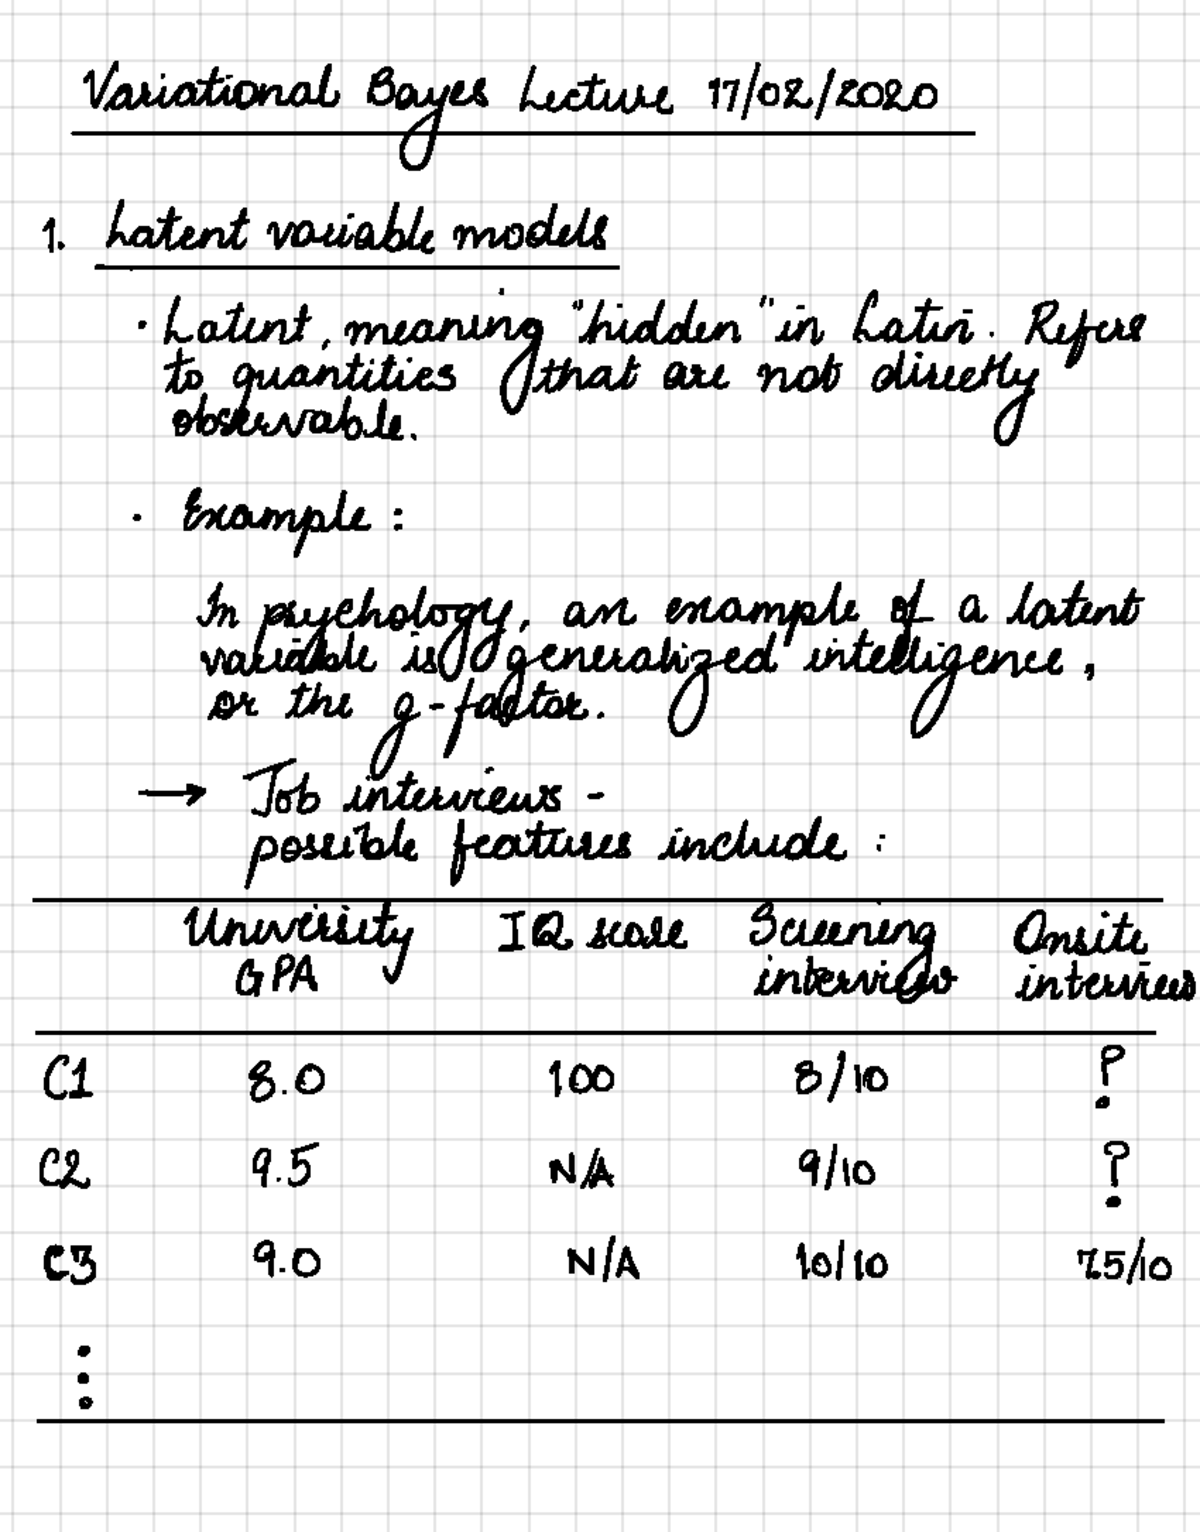 Variational Bayes Lecture 17/02/2020
1. Latent variable models
· Latent, meaning "hidden" in Latin. Refers
to quantities that are not directly
observable.
· Example :
In psychology, an example of a latent
variable is generalized intelligence,
or the g-factor.
→ Job interviews -
possible features include :
University GPA IQ score Screening interview Onsite interview
C1 8.0 100 8/10 ?
C2 9.5 N/A 9/10 ?
C3 9.0 N/A 10/10 7.5/10
⋮